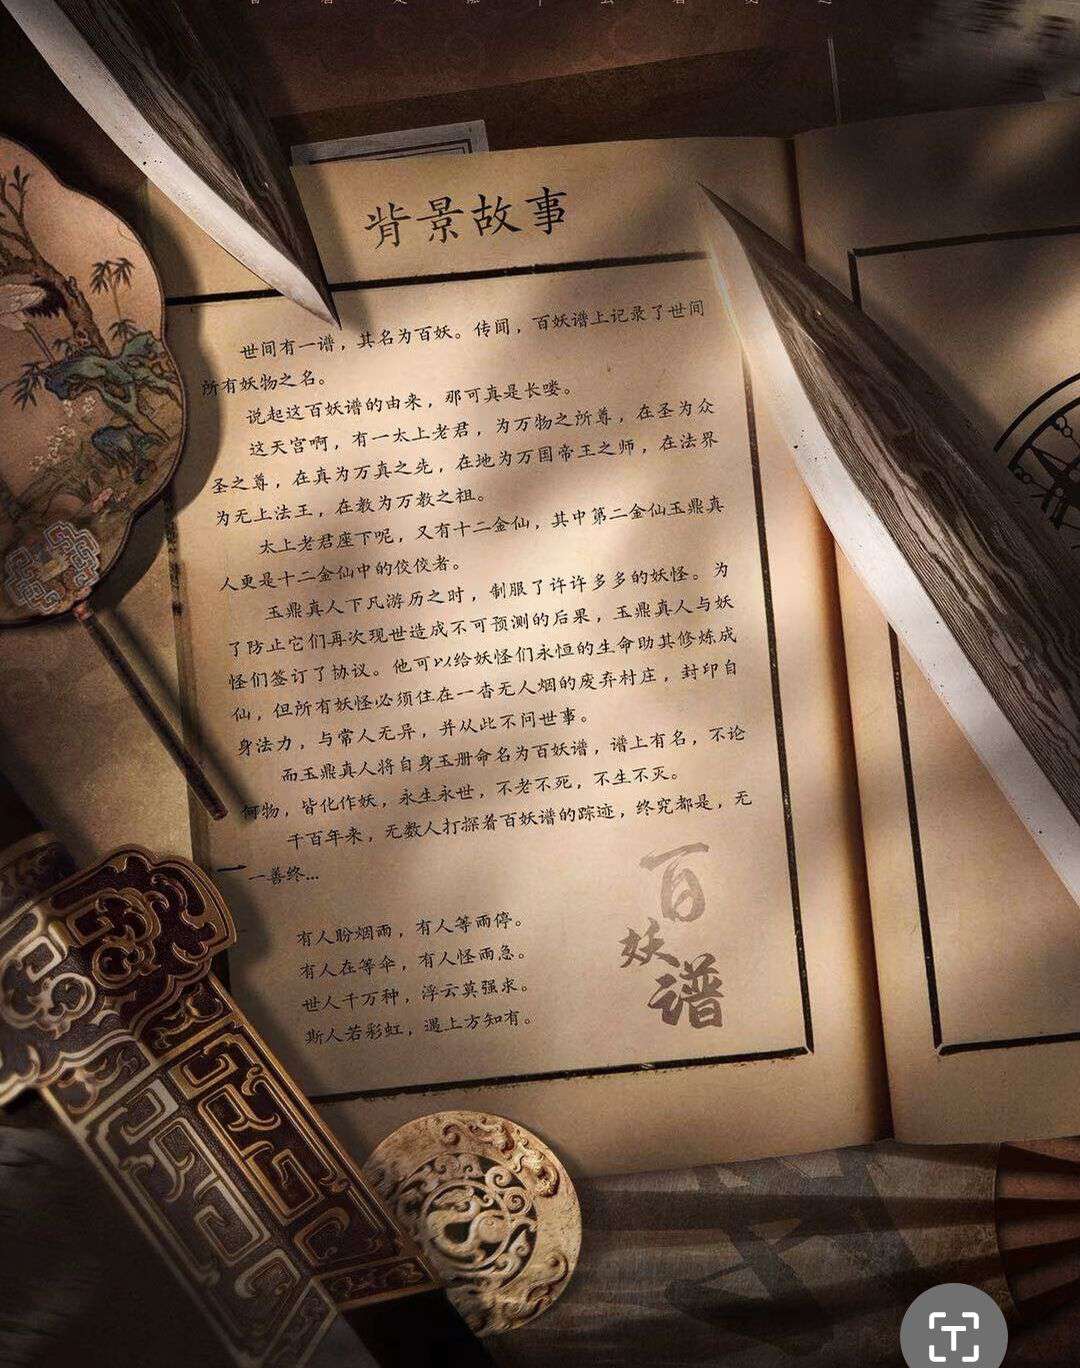 背景故事
世间有一谱，其名为百妖。传闻，百妖谱上记录了世间
所有妖物之名。
说起这百妖谱的由来，那可真是长喽。
这天宫啊，有一太上老君，为万物之所尊，在圣为众
圣之尊，在真为万真之先，在地为万国帝王之师，在法界
为无上法王，在教为万教之祖。
太上老君座下呢，又有十二金仙，其中第二金仙玉鼎真
人更是十二金仙中的佼佼者。
玉鼎真人下凡游历之时，制服了许许多多的妖怪。为
了防止它们再次现世造成不可预测的后果，玉鼎真人与妖
怪们签订了协议。他可以给妖怪们永恒的生命助其修炼成
仙，但所有妖怪必须住在一杳无人烟的废弃村庄，封印自
身法力，与常人无异，并从此不问世事。
而玉鼎真人将自身玉册命名为百妖谱，谱上有名，不论
何物，皆化作妖，永生永世，不老不死，不生不灭。
千百年来，无数人打探着百妖谱的踪迹，终究都是，无
一善终...
有人盼烟雨，有人等雨停。
有人在等伞，有人怪雨急。
世人千万种，浮云莫强求。
斯人若彩虹，遇上方知有。
百
妖
谱